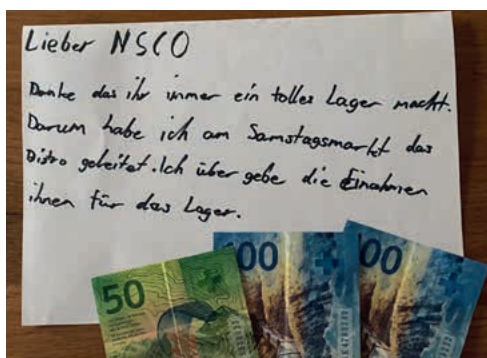 Lieber NSCO
Danke das ihr immer ein tolles Lager macht.
Darum habe ich am Samstagsmarkt das
Bistro geleitet. Ich über gebe die Einahmen
ihnen für das Lager.
50
100
100